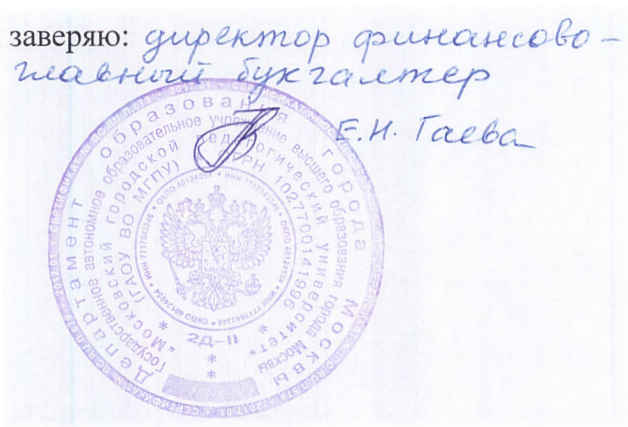 заверяю: директор финансово-
главный бухгалтер
Е.Н. Гаева
Департамент образования города Москвы
Государственное автономное образовательное учреждение высшего образования города Москвы
"Московский городской педагогический университет"
(ГАОУ ВО МГПУ) ОГРН 1027700141996
2Д-II